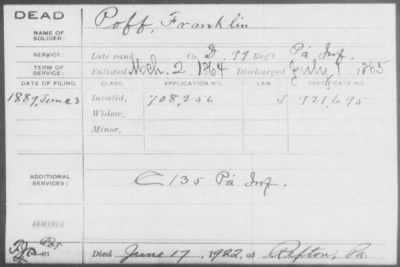 DEAD
NAME OF SOLDIER:
Poff, Franklin
SERVICE:
Late rank, Co. D, 79 Reg't Pa Inf.
TERM OF SERVICE:
Enlisted Mch. 2, 1864 Discharged July 1865
DATE OF FILING. CLASS. APPLICATION NO. LAW. CERTIFICATE NO.
1889, June 3 Invalid, 708,256 921,695
Widow,
Minor,
ADDITIONAL SERVICES:
C 135 Pa Inf.
Died June 17, 1922, at Refton, Pa.